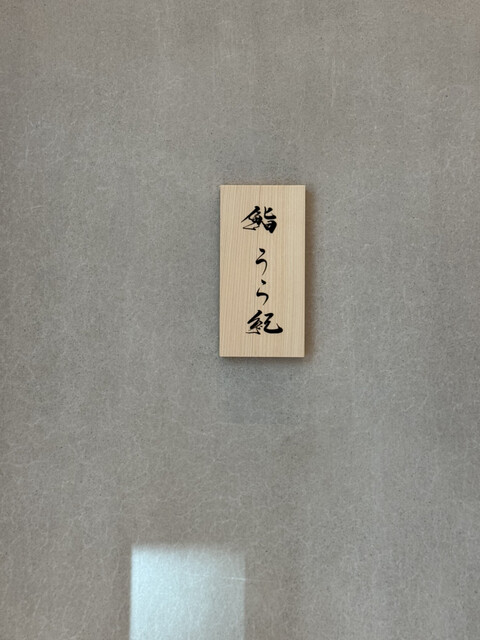 鮨 うら紀